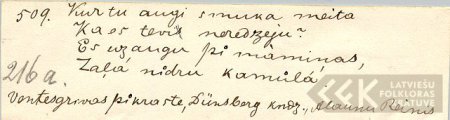 509. Kur tu augi smuka meita
Ka es tevis neredzeju?
Es uzaugu pi māmiņas,
Zaļá nidru kamúlá.
216a.
Ventesgrivas pikraste, Dünsberg kndz.,
LATVIEŠU
FOLKLORAS
KRĀTUVE